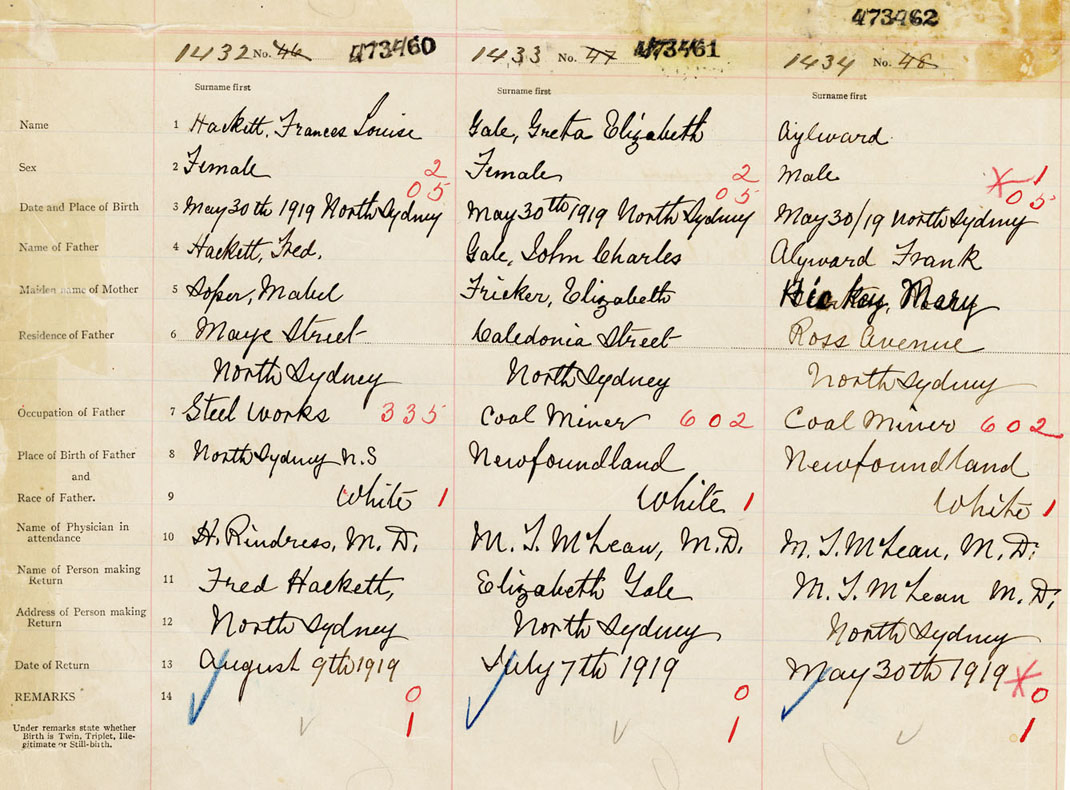 473462
1432 No. 46 473460 1433 No. 47 473461 1434 No. 48
Surname first Surname first Surname first
Name 1 Hackett, Frances Louise Gale, Greta Elizabeth Aylward
Sex 2 Female 2 Female 2 Male X 1
05 05 05
Date and Place of Birth 3 May 30th 1919 North Sydney May 30th 1919 North Sydney May 30/19 North Sydney
Name of Father 4 Hackett, Fred. Gale, John Charles Alyward Frank
Maiden name of Mother 5 Soper, Mabel Fricker, Elizabeth Hickey, Mary
Residence of Father 6 Maye Street Caledonia Street Ross Avenue
North Sydney North Sydney North Sydney
Occupation of Father 7 Steel Works 335 Coal Miner 602 Coal Miner 602
Place of Birth of Father 8 North Sydney N.S Newfoundland Newfoundland
and
Race of Father. 9 White 1 White 1 White 1
Name of Physician in
attendance 10 H. Rindress, M.D. M. T. McLean, M.D. M. T. McLean, M.D.
Name of Person making
Return 11 Fred Hackett, Elizabeth Gale M. T. McLean M.D.
Address of Person making
Return 12 North Sydney North Sydney North Sydney
Date of Return 13 August 9th 1919 July 7th 1919 May 30th 1919 X
REMARKS 14 0 0 0
Under remarks state whether
Birth is Twin, Triplet, Ille-
gitimate or Still-birth.
1 1 1